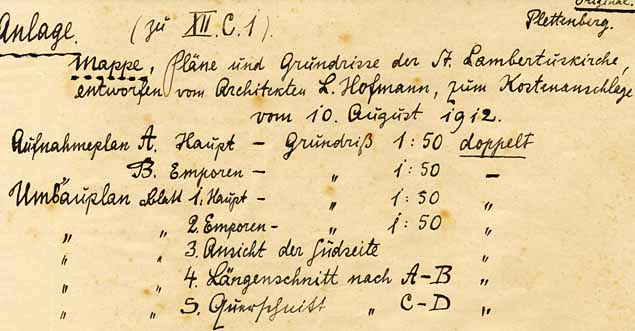 Originale.
Plettenberg.
Anlage. (zu XII. C. 1).
Mappe, Pläne und Grundrisse der St. Lambertuskirche,
entworfen vom Architekten L. Hofmann, zum Kostenanschlage
vom 10. August 1912.
Aufnahmeplan A. Haupt - Grundriß 1:50 doppelt
B. Emporen - „ 1:50 -
Umbauplan Blatt 1. Haupt - „ 1:50 „
„ „ 2. Emporen - „ 1:50 „
„ „ 3. Ansicht der Südseite „
„ „ 4. Längenschnitt nach A-B „
„ „ 5. Querschnitt „ C-D „